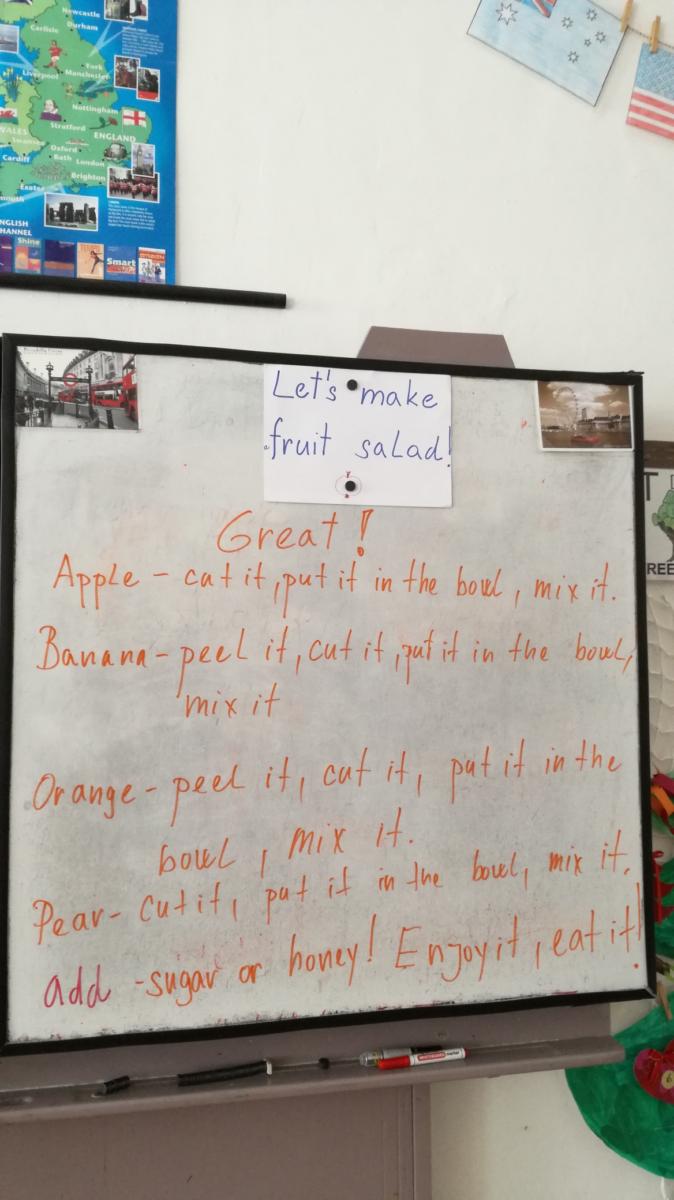 Newcastle
Carlisle
Durham
York
Liverpool
Manchester
Nottingham
WALES
Stratford
ENGLAND
Swansea
Oxford
Cardiff
Bath
London
Brighton
Exeter
NGLISH
HANNEL
Shine
Smart
Let's make
fruit salad!
Great!
Apple - cut it, put it in the bowl, mix it.
Banana - peel it, cut it, put it in the bowl,
mix it
Orange - peel it, cut it, put it in the
bowl, mix it.
Pear - cut it, put it in the bowl, mix it.
add - sugar or honey! Enjoy it, eat it!
T
REE